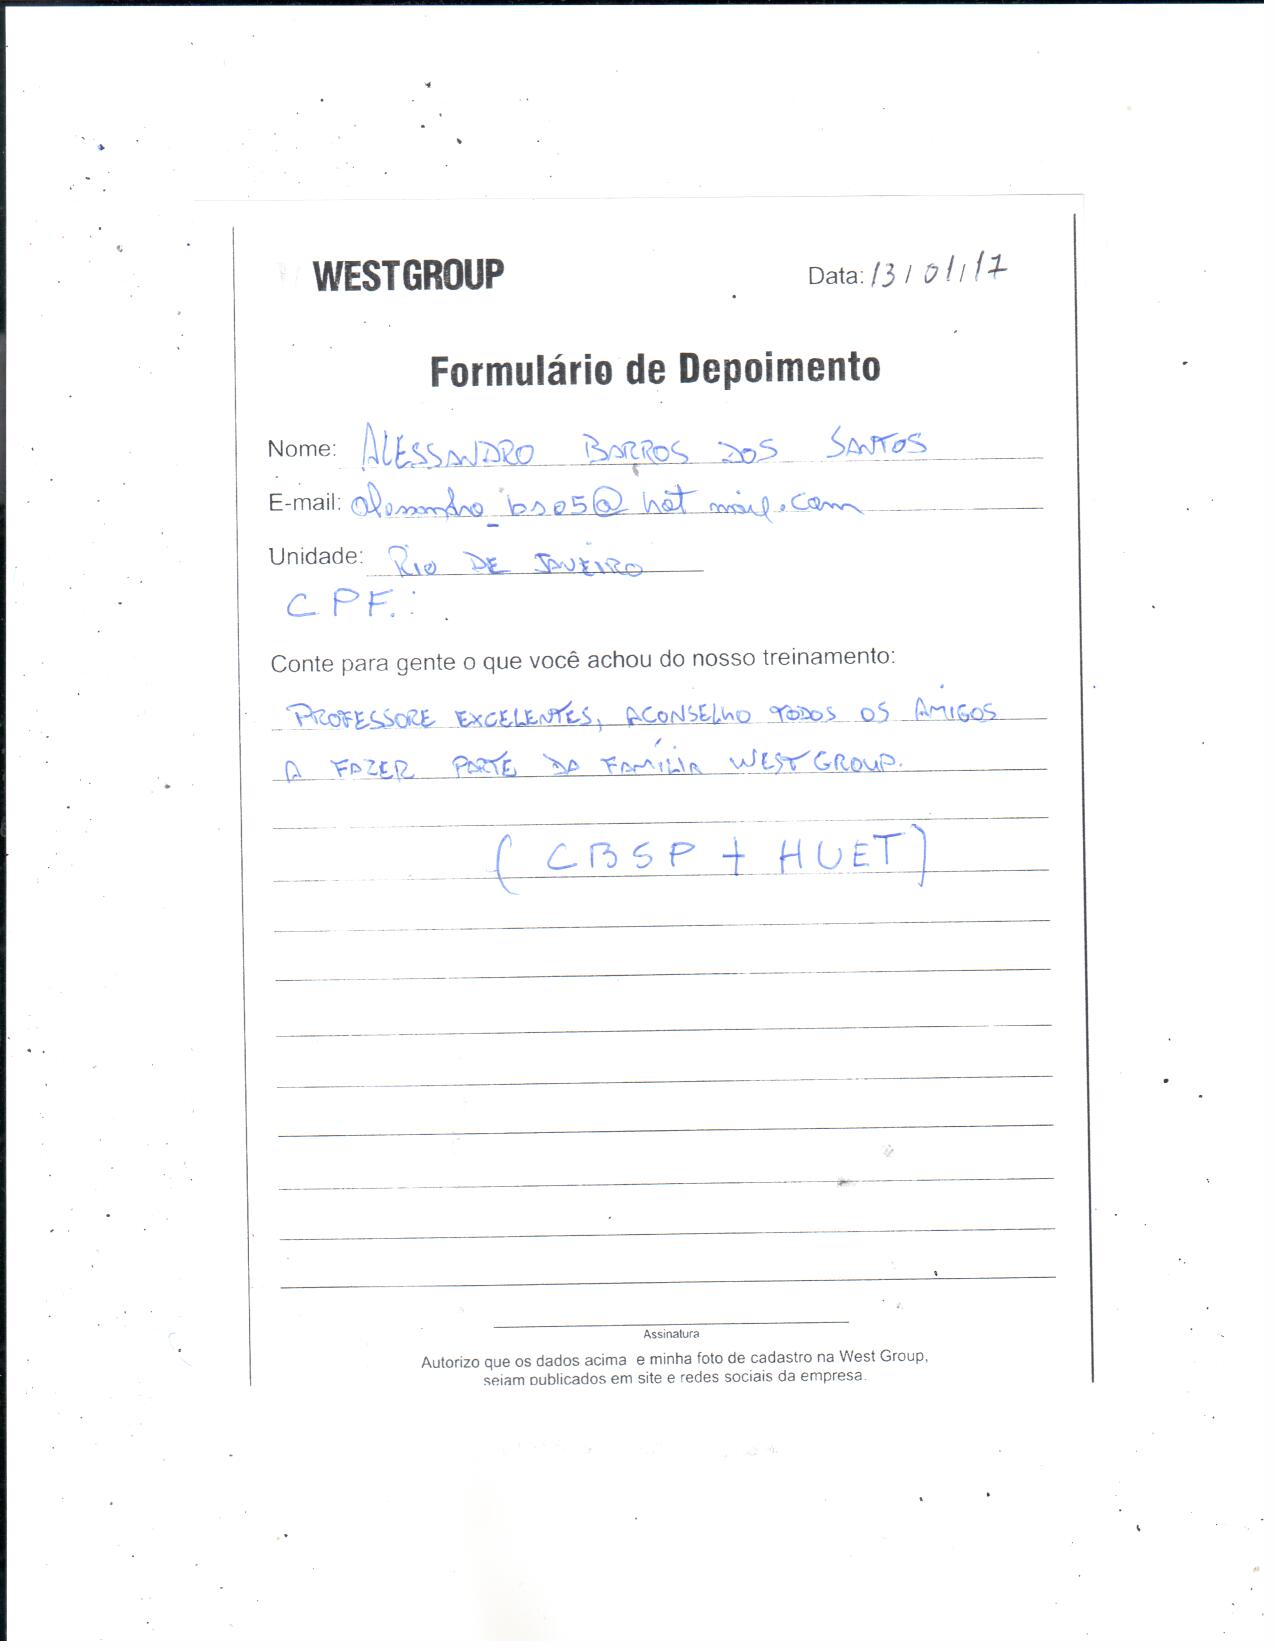 WEST GROUP
Data: 13/01/17
Formulário de Depoimento
Nome: ALESSANDRO BARROS DOS SANTOS
E-mail: alessandro_bs05@hotmail.com
Unidade: RIO DE JANEIRO
CPF.:
Conte para gente o que você achou do nosso treinamento:
PROFESSORE EXCELENTES, ACONSELHO TODOS OS AMIGOS
A FAZER PARTE DA FAMÍLIA WEST GROUP.
(CBSP + HUET)
Assinatura
Autorizo que os dados acima e minha foto de cadastro na West Group,
sejam publicados em site e redes sociais da empresa.